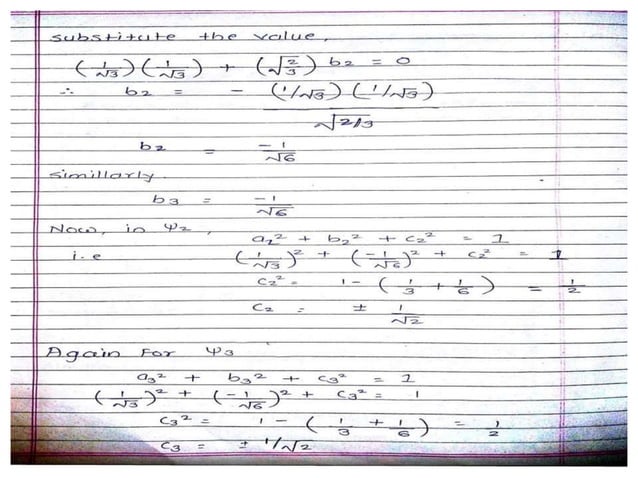 substitute the value,
(1/√3) (1/√3) + (√2/3) b2 = 0
∴ b2 = - (1/√3) (1/√3) / √2/3
b2 = -1/√6
Simillarly
b3 = -1/√6
Now, in ψ2, a2² + b2² + c2² = 1
i.e (1/√3)² + (-1/√6)² + c2² = 1
c2² = 1 - (1/3 + 1/6) = 1/2
c2 = ± 1/√2
Again For ψ3
a3² + b3² + c3² = 1
(1/√3)² + (-1/√6)² + c3² = 1
c3² = 1 - (1/3 + 1/6) = 1/2
c3 = ± 1/√2